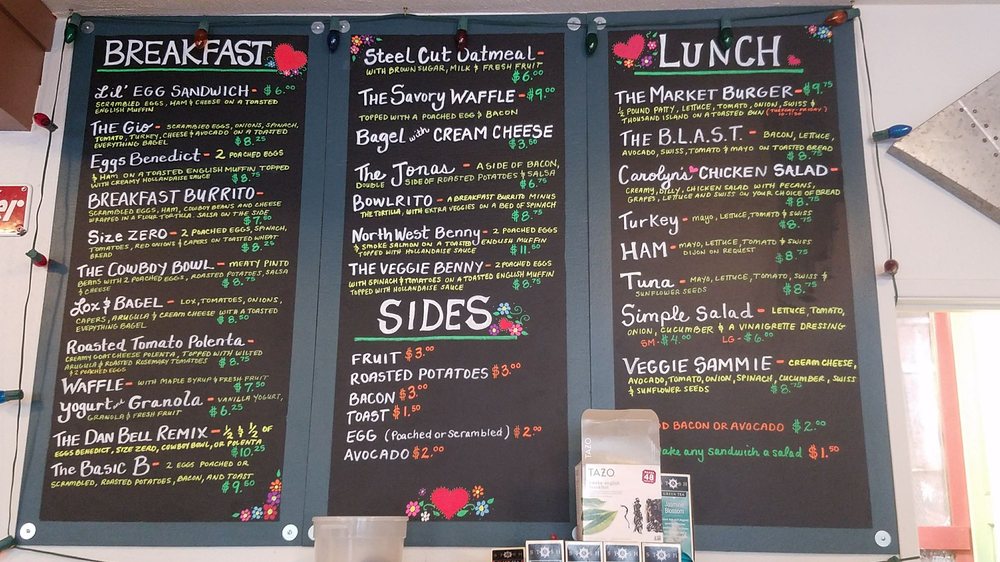 BREAKFAST
Lil' EGG SANDWICH - $6.00
SCRAMBLED EGGS, HAM & CHEESE ON A TOASTED
ENGLISH MUFFIN
THE Gio - SCRAMBLED EGGS, ONIONS, SPINACH,
TOMATO, TURKEY, CHEESE & AVOCADO ON A TOASTED
EVERYTHING BAGEL $8.25
Eggs Benedict - 2 POACHED EGGS
& HAM ON A TOASTED ENGLISH MUFFIN TOPPED
WITH CREAMY HOLLANDAISE SAUCE $8.75
BREAKFAST BURRITO -
SCRAMBLED EGGS, HAM, COWBOY BEANS AND CHEESE
WRAPPED IN A FLOUR TORTILLA. SALSA ON THE SIDE
$7.50
Size ZERO - 2 POACHED EGGS, SPINACH,
TOMATOES, RED ONIONS & CAPERS ON TOASTED WHEAT
BREAD $8.25
THE COWBOY BOWL - MEATY PINTO
BEANS WITH 2 POACHED EGGS, ROASTED POTATOES, SALSA
& CHEESE $8.75
Lox & BAGEL - LOX, TOMATOES, ONIONS,
CAPERS, ARUGULA & CREAM CHEESE WITH A TOASTED
EVERYTHING BAGEL $8.50
Roasted Tomato Polenta -
CREAMY GOAT CHEESE POLENTA, TOPPED WITH WILTED
ARUGULA & ROASTED ROSEMARY TOMATOES $8.75
& 2 POACHED EGGS
WAFFLE - WITH MAPLE SYRUP & FRESH FRUIT
$7.50
Yogurt and Granola - VANILLA YOGURT,
GRANOLA & FRESH FRUIT $6.25
THE DAN BELL REMIX - ½ & ½ OF
EGGS BENEDICT, SIZE ZERO, COWBOY BOWL, OR POLENTA
$10.25
The Basic B - 2 EGGS POACHED OR
SCRAMBLED, ROASTED POTATOES, BACON, AND TOAST
$9.50
Steel Cut Oatmeal -
WITH BROWN SUGAR, MILK & FRESH FRUIT
$6.00
THE Savory WAFFLE - $9.00
TOPPED WITH A POACHED EGG & BACON
Bagel with CREAM CHEESE
$3.50
The Jonas - A SIDE OF BACON,
DOUBLE SIDE OF ROASTED POTATOES & SALSA
$6.75
BOWLRITO - A BREAKFAST BURRITO MINUS
THE TORTILLA, WITH EXTRA VEGGIES ON A BED OF SPINACH
$8.75
NORTH WEST Benny - 2 POACHED EGGS
& SMOKE SALMON ON A TOASTED ENGLISH MUFFIN
TOPPED WITH HOLLANDAISE SAUCE $11.50
THE VEGGIE BENNY - 2 POACHED EGGS
WITH SPINACH & TOMATOES ON A TOASTED ENGLISH MUFFIN
TOPPED WITH HOLLANDAISE SAUCE $8.75
SIDES
FRUIT $3.00
ROASTED POTATOES $3.00
BACON $3.00
TOAST $1.50
EGG (Poached or Scrambled) $2.00
AVOCADO $2.00
LUNCH
THE MARKET BURGER - $9.75
½ POUND PATTY, LETTUCE, TOMATO, ONION, SWISS &
THOUSAND ISLAND ON A TOASTED BUN (TUESDAY-FRIDAY)
THE B.L.A.S.T. - BACON, LETTUCE,
AVOCADO, SWISS, TOMATO & MAYO ON TOASTED BREAD
$8.75
Carolyn's CHICKEN SALAD -
CREAMY, DILLY, CHICKEN SALAD WITH PECANS,
GRAPES, LETTUCE AND SWISS ON YOUR CHOICE OF BREAD
$8.75
Turkey - mayo, LETTUCE, TOMATO & SWISS
$8.75
HAM - MAYO, LETTUCE, TOMATO & SWISS
DIJON ON REQUEST $8.75
Tuna - MAYO, LETTUCE, TOMATO, SWISS &
SUNFLOWER SEEDS $8.75
Simple Salad - LETTUCE, TOMATO,
ONION, CUCUMBER & A VINAIGRETTE DRESSING
SM - $4.00 LG - $6.00
VEGGIE SAMMIE - CREAM CHEESE,
AVOCADO, TOMATO, ONION, SPINACH, CUCUMBER, SWISS
& SUNFLOWER SEEDS $8.75
D BACON OR AVOCADO $2.00
ake any sandwich a salad $1.50
TAZO
TAZO
48
GREEN TEA
Jasmine
Blossom
STASH
STASH
STASH
STASH
er